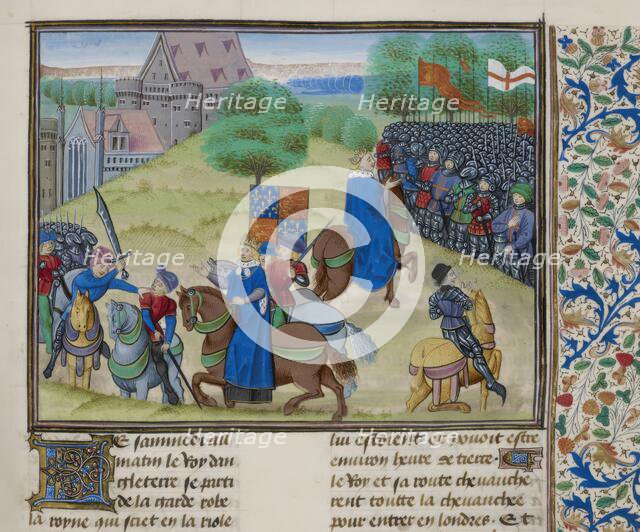 Heritage Heritage
Heritage Heritage Heritage
Heritage Heritage
Le
matin le Roy dan
gleterre se parti
de la garde robe
la royne qui sciet en la riole
lui estoient et pouoit estre
environ heure de tierce
le Roy et sa route cheuauche
rent toutte la cheuauchee
pour entrer en londres. Et